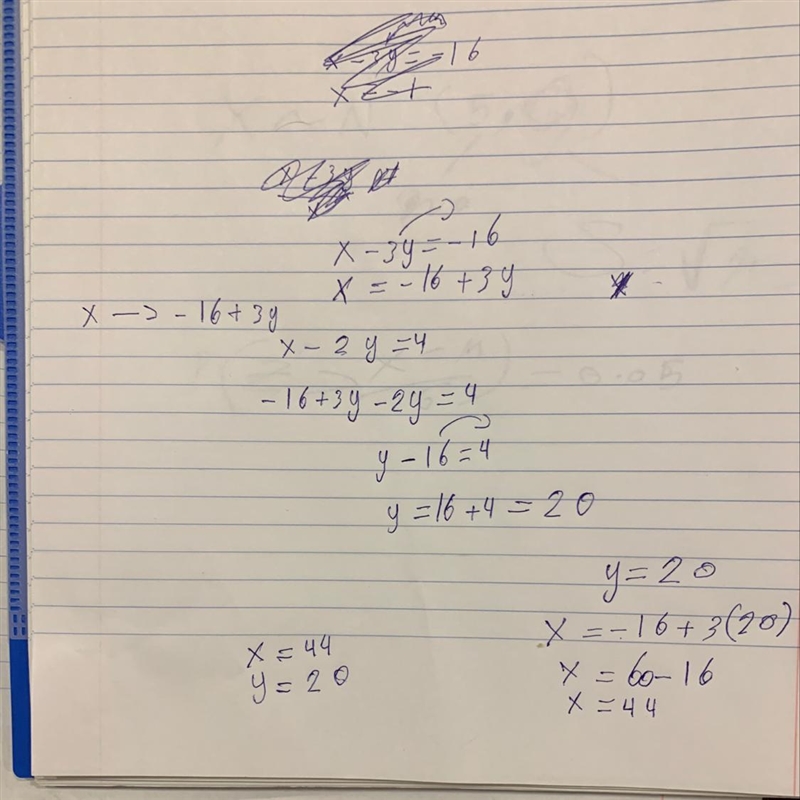 x - 3y = -16
x = -16 + 3y
x -> -16 + 3y
x - 2y = 4
-16 + 3y - 2y = 4
y - 16 = 4
y = 16 + 4 = 20
y = 20
x = -16 + 3(20)
x = 60 - 16
x = 44
x = 44
y = 20